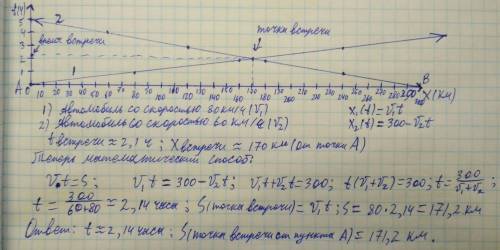 t(ч)
5
4
3
2
1
2
время встречи
точка встречи
1
A
B
X (км)
0 10 20 30 40 50 60 70 80 90 100 110 120 130 140 150 160 170 180
300
1) Автомобиль со скоростью 80 км/ч (V₁)
x₁(t)=V₁t
2) Автомобиль со скоростью 60 км/ч (V₂)
x₂(t)=300-V₂t
t встречи ≈ 2,1 ч ; X встречи ≈ 170 км (от точки А)
Теперь математический способ:
V·t=S; V₁t = 300-V₂t; V₁t+V₂t=300; t(V₁+V₂)=300; t=300/(V₁+V₂)
t = 300/(60+80) ≈ 2,14 часы ; S(точки встречи)=V₁t ; S = 80·2,14 = 171,2 км
Ответ: t≈2,14 часы ; S(точки встречи от пункта А)=171,2 км.